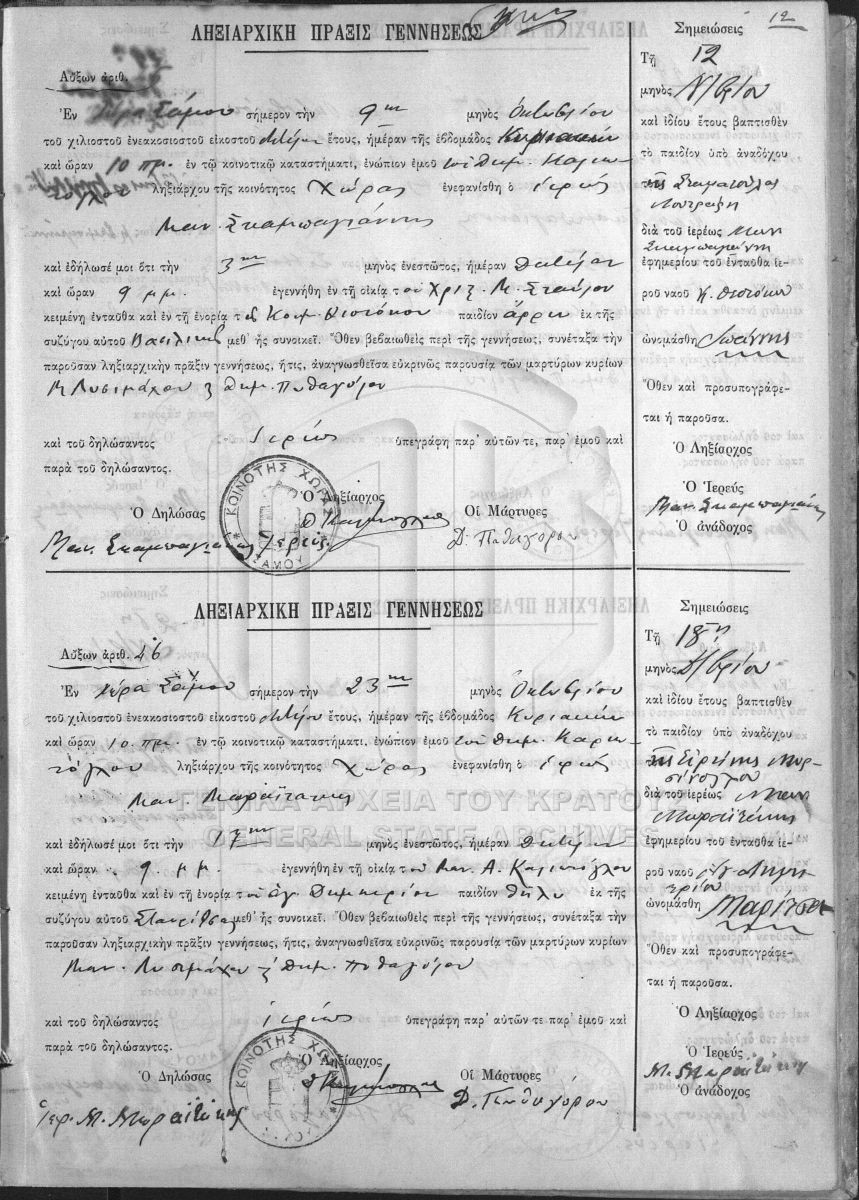 12
ΛΗΞΙΑΡΧΙΚΗ ΠΡΑΞΙΣ ΓΕΝΝΗΣΕΩΣ
Αὔξων ἀριθ.
Ἐν Χώρα Σάμου σήμερον τὴν 9ην μηνὸς Ὀκτωβρίου
τοῦ χιλιοστοῦ ἐνεακοσιοστοῦ εἰκοστοῦ ἔτους, ἡμέραν τῆς ἑβδομάδος Κυριακὴν
καὶ ὥραν 10 πμ. ἐν τῷ κοινοτικῷ καταστήματι, ἐνώπιον ἐμοῦ τοῦ Δημ.
ληξιάρχου τῆς κοινότητος Χώρας ἐνεφανίσθη ὁ ἱερεὺς
Μαν. Σκαμπαγιάννης
καὶ ἐδήλωσέ μοι ὅτι τὴν 3ην μηνὸς ἐνεστῶτος, ἡμέραν Δευτέραν
καὶ ὥραν 9 μμ. ἐγεννήθη ἐν τῇ οἰκίᾳ τοῦ Χριζ. Μ. Σταύρου
κειμένῃ ἐνταῦθα καὶ ἐν τῇ ἐνορίᾳ τῆς Κοιμ. Θεοτόκου παιδίον ἄρρεν ἐκ τῆς
συζύγου αὐτοῦ Βασιλικῆς μεθ᾽ ἧς συνοικεῖ. Ὅθεν βεβαιωθεὶς περὶ τῆς γεννήσεως, συνέταξα τὴν
παροῦσαν ληξιαρχικὴν πρᾶξιν γεννήσεως, ἥτις, ἀναγνωσθεῖσα εὐκρινῶς παρουσίᾳ τῶν μαρτύρων κυρίων
Μ. Λυσιμάχου & Δημ. Πυθαγόρου
καὶ τοῦ δηλώσαντος ἱερέως ὑπεγράφη παρ᾽ αὐτῶν τε, παρ᾽ ἐμοῦ καὶ
παρὰ τοῦ δηλώσαντος.
ΚΟΙΝΟΤΗΣ ΧΩΡΑΣ ΣΑΜΟΥ
Ὁ Δηλώσας Ὁ Ληξίαρχος Οἱ Μάρτυρες
Μαν. Σκαμπαγιάννης Ἱερεύς Δ. Πυθαγόρου
Σημειώσεις
Τῇ 12
μηνὸς
καὶ ἰδίου ἔτους βαπτισθὲν
τὸ παιδίον ὑπὸ ἀναδόχου
τῆς Σταματούλας
διὰ τοῦ ἱερέως Μαν
Σκαμπαγιάννη
ἐφημερίου τοῦ ἐνταῦθα ἱε-
ροῦ ναοῦ Κ. Θεοτόκου
ὠνομάσθη Ἰωάννης
Ὅθεν καὶ προσυπογράφε-
ται ἡ παροῦσα.
Ὁ Ληξίαρχος
Ὁ Ἱερεύς
Μαν. Σκαμπαγιάννης
Ὁ ἀνάδοχος
ΛΗΞΙΑΡΧΙΚΗ ΠΡΑΞΙΣ ΓΕΝΝΗΣΕΩΣ
Αὔξων ἀριθ. 46
Ἐν Χώρα Σάμου σήμερον τὴν 23ην μηνὸς Ὀκτωβρίου
τοῦ χιλιοστοῦ ἐνεακοσιοστοῦ εἰκοστοῦ ἔτους, ἡμέραν τῆς ἑβδομάδος Κυριακὴν
καὶ ὥραν 10 πμ. ἐν τῷ κοινοτικῷ καταστήματι, ἐνώπιον ἐμοῦ τοῦ Δημ.
ληξιάρχου τῆς κοινότητος Χώρας ἐνεφανίσθη ὁ ἱερεὺς
Μαν. Μαραϊτάκης
καὶ ἐδήλωσέ μοι ὅτι τὴν 17ην μηνὸς ἐνεστῶτος, ἡμέραν Δευτέραν
καὶ ὥραν 9 μμ. ἐγεννήθη ἐν τῇ οἰκίᾳ τοῦ Μαν. Α.
κειμένῃ ἐνταῦθα καὶ ἐν τῇ ἐνορίᾳ τοῦ Ἁγ. Δημητρίου παιδίον θῆλυ ἐκ τῆς
συζύγου αὐτοῦ μεθ᾽ ἧς συνοικεῖ. Ὅθεν βεβαιωθεὶς περὶ τῆς γεννήσεως, συνέταξα τὴν
παροῦσαν ληξιαρχικὴν πρᾶξιν γεννήσεως, ἥτις, ἀναγνωσθεῖσα εὐκρινῶς παρουσίᾳ τῶν μαρτύρων κυρίων
Μαν. Λυσιμάχου & Δημ. Πυθαγόρου
καὶ τοῦ δηλώσαντος ἱερέως ὑπεγράφη παρ᾽ αὐτῶν τε παρ᾽ ἐμοῦ καὶ
παρὰ τοῦ δηλώσαντος.
ΚΟΙΝΟΤΗΣ ΧΩΡΑΣ
Ὁ Δηλώσας Ὁ Ληξίαρχος Οἱ Μάρτυρες
Ἱερ. Μ. Μαραϊτάκης Δ. Πυθαγόρου
Σημειώσεις
Τῇ 18ῃ
μηνὸς
καὶ ἰδίου ἔτους βαπτισθὲν
τὸ παιδίον ὑπὸ ἀναδόχου
τῆς Εἰρήνης
διὰ τοῦ ἱερέως Μαν
Μαραϊτάκης
ἐφημερίου τοῦ ἐνταῦθα
ἱεροῦ ναοῦ Ἁγ. Δημη-
τρίου
ὠνομάσθη Μαρίτσα
Ὅθεν καὶ προσυπογράφε-
ται ἡ παροῦσα.
Ὁ Ληξίαρχος
Ὁ Ἱερεύς
Μ. Μαραϊτάκης
Ὁ ἀνάδοχος
ΓΕΝΙΚΑ ΑΡΧΕΙΑ ΤΟΥ ΚΡΑΤΟΥΣ
GENERAL STATE ARCHIVES